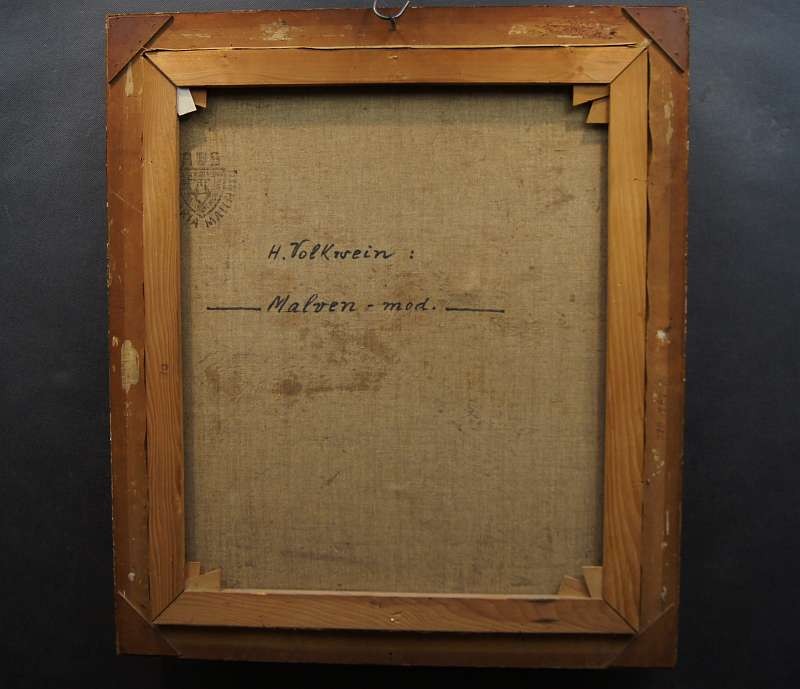 H. Volkwein :
Malven - mod.